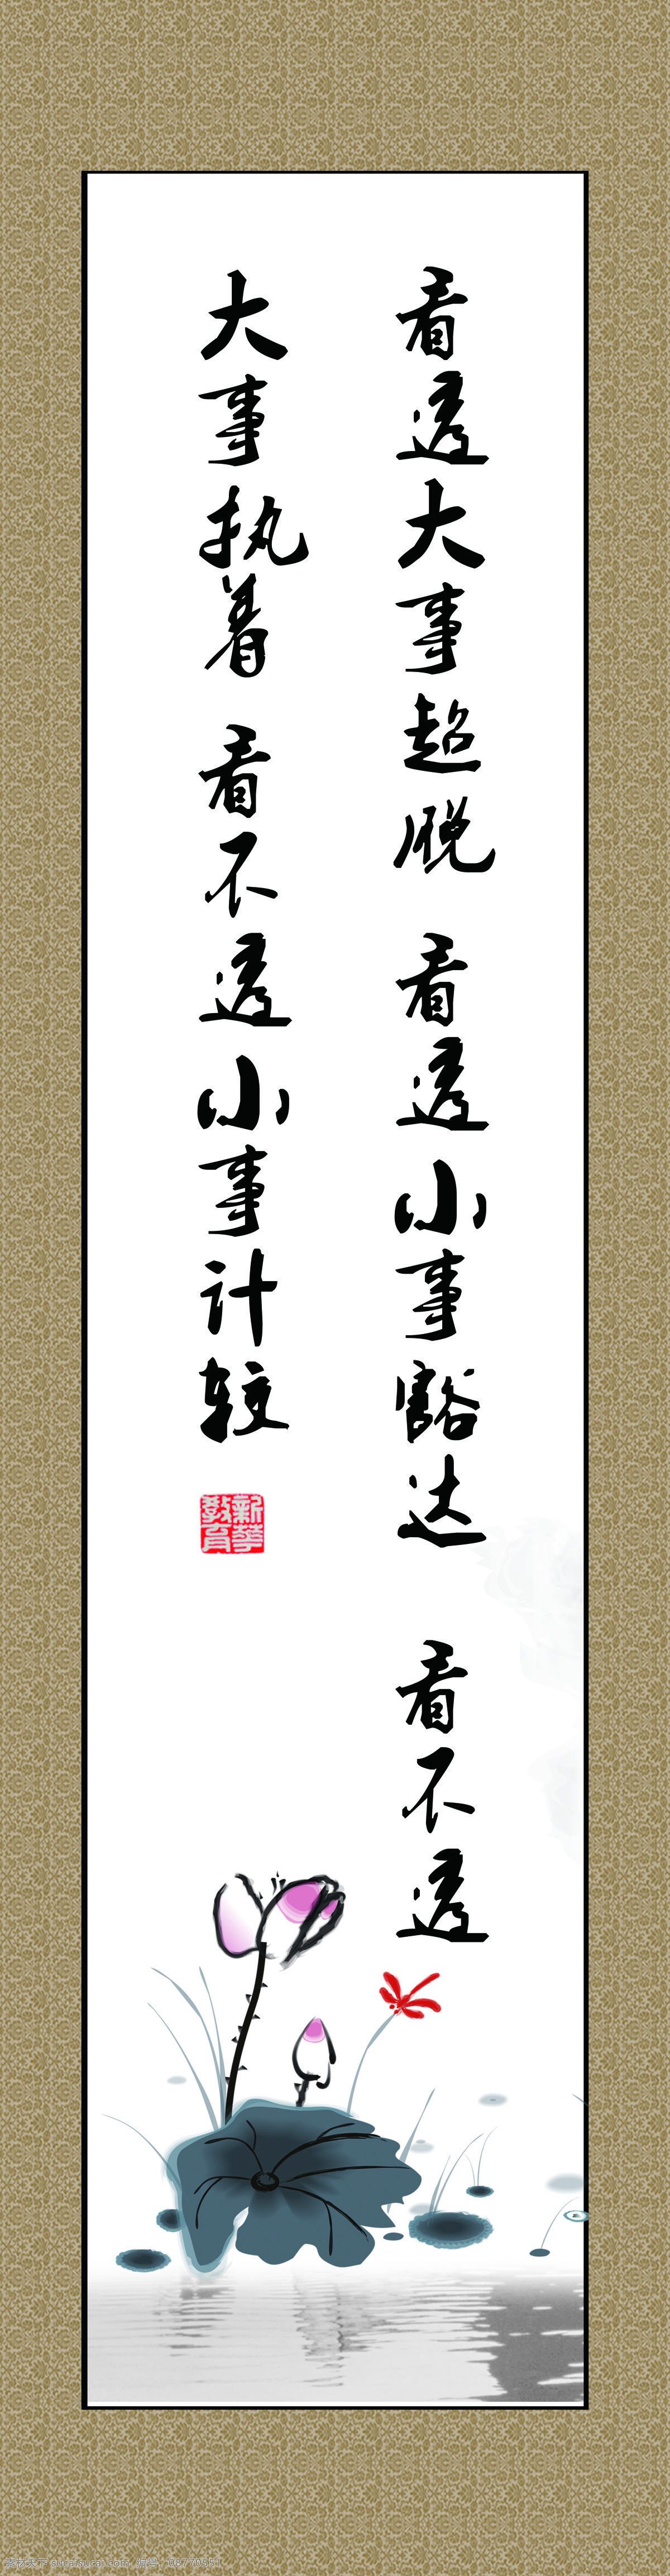 看透大事超脱 看透小事豁达 看不透
大事执着 看不透小事计较
新华教育